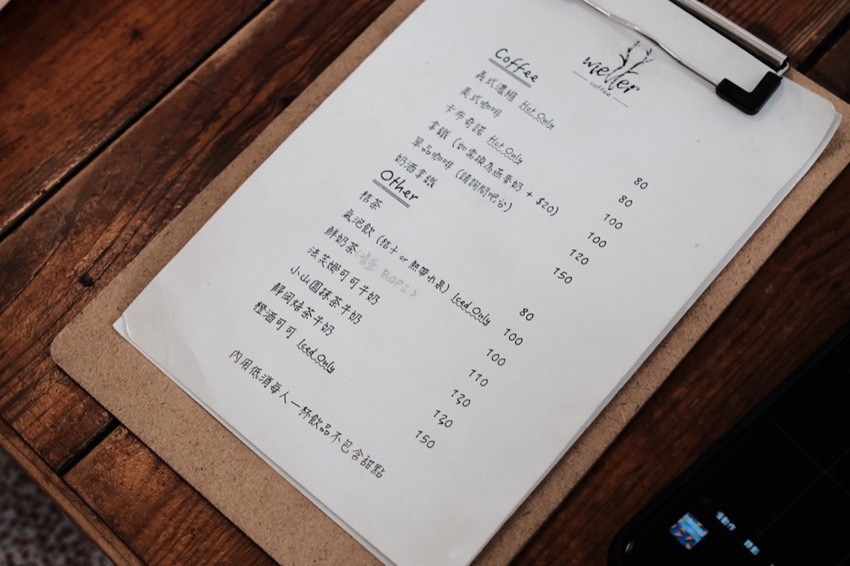 coffee
Coffee
義式濃縮 Hot Only 80
美式咖啡 80
卡布奇諾 Hot Only 100
拿鐵 (如需換為燕麥奶 + $20) 100
單品咖啡 (請詢問吧台) 120
奶酒拿鐵 150
Other
桔茶 80
氣泡飲 (桔子 or 熱帶水果) Iced Only 100
鮮奶茶 100
法芙娜可可牛奶 110
小山園抹茶牛奶 120
靜岡焙茶牛奶 120
橙酒可可 Iced Only 150
內用低消每人一杯飲品不包含甜點